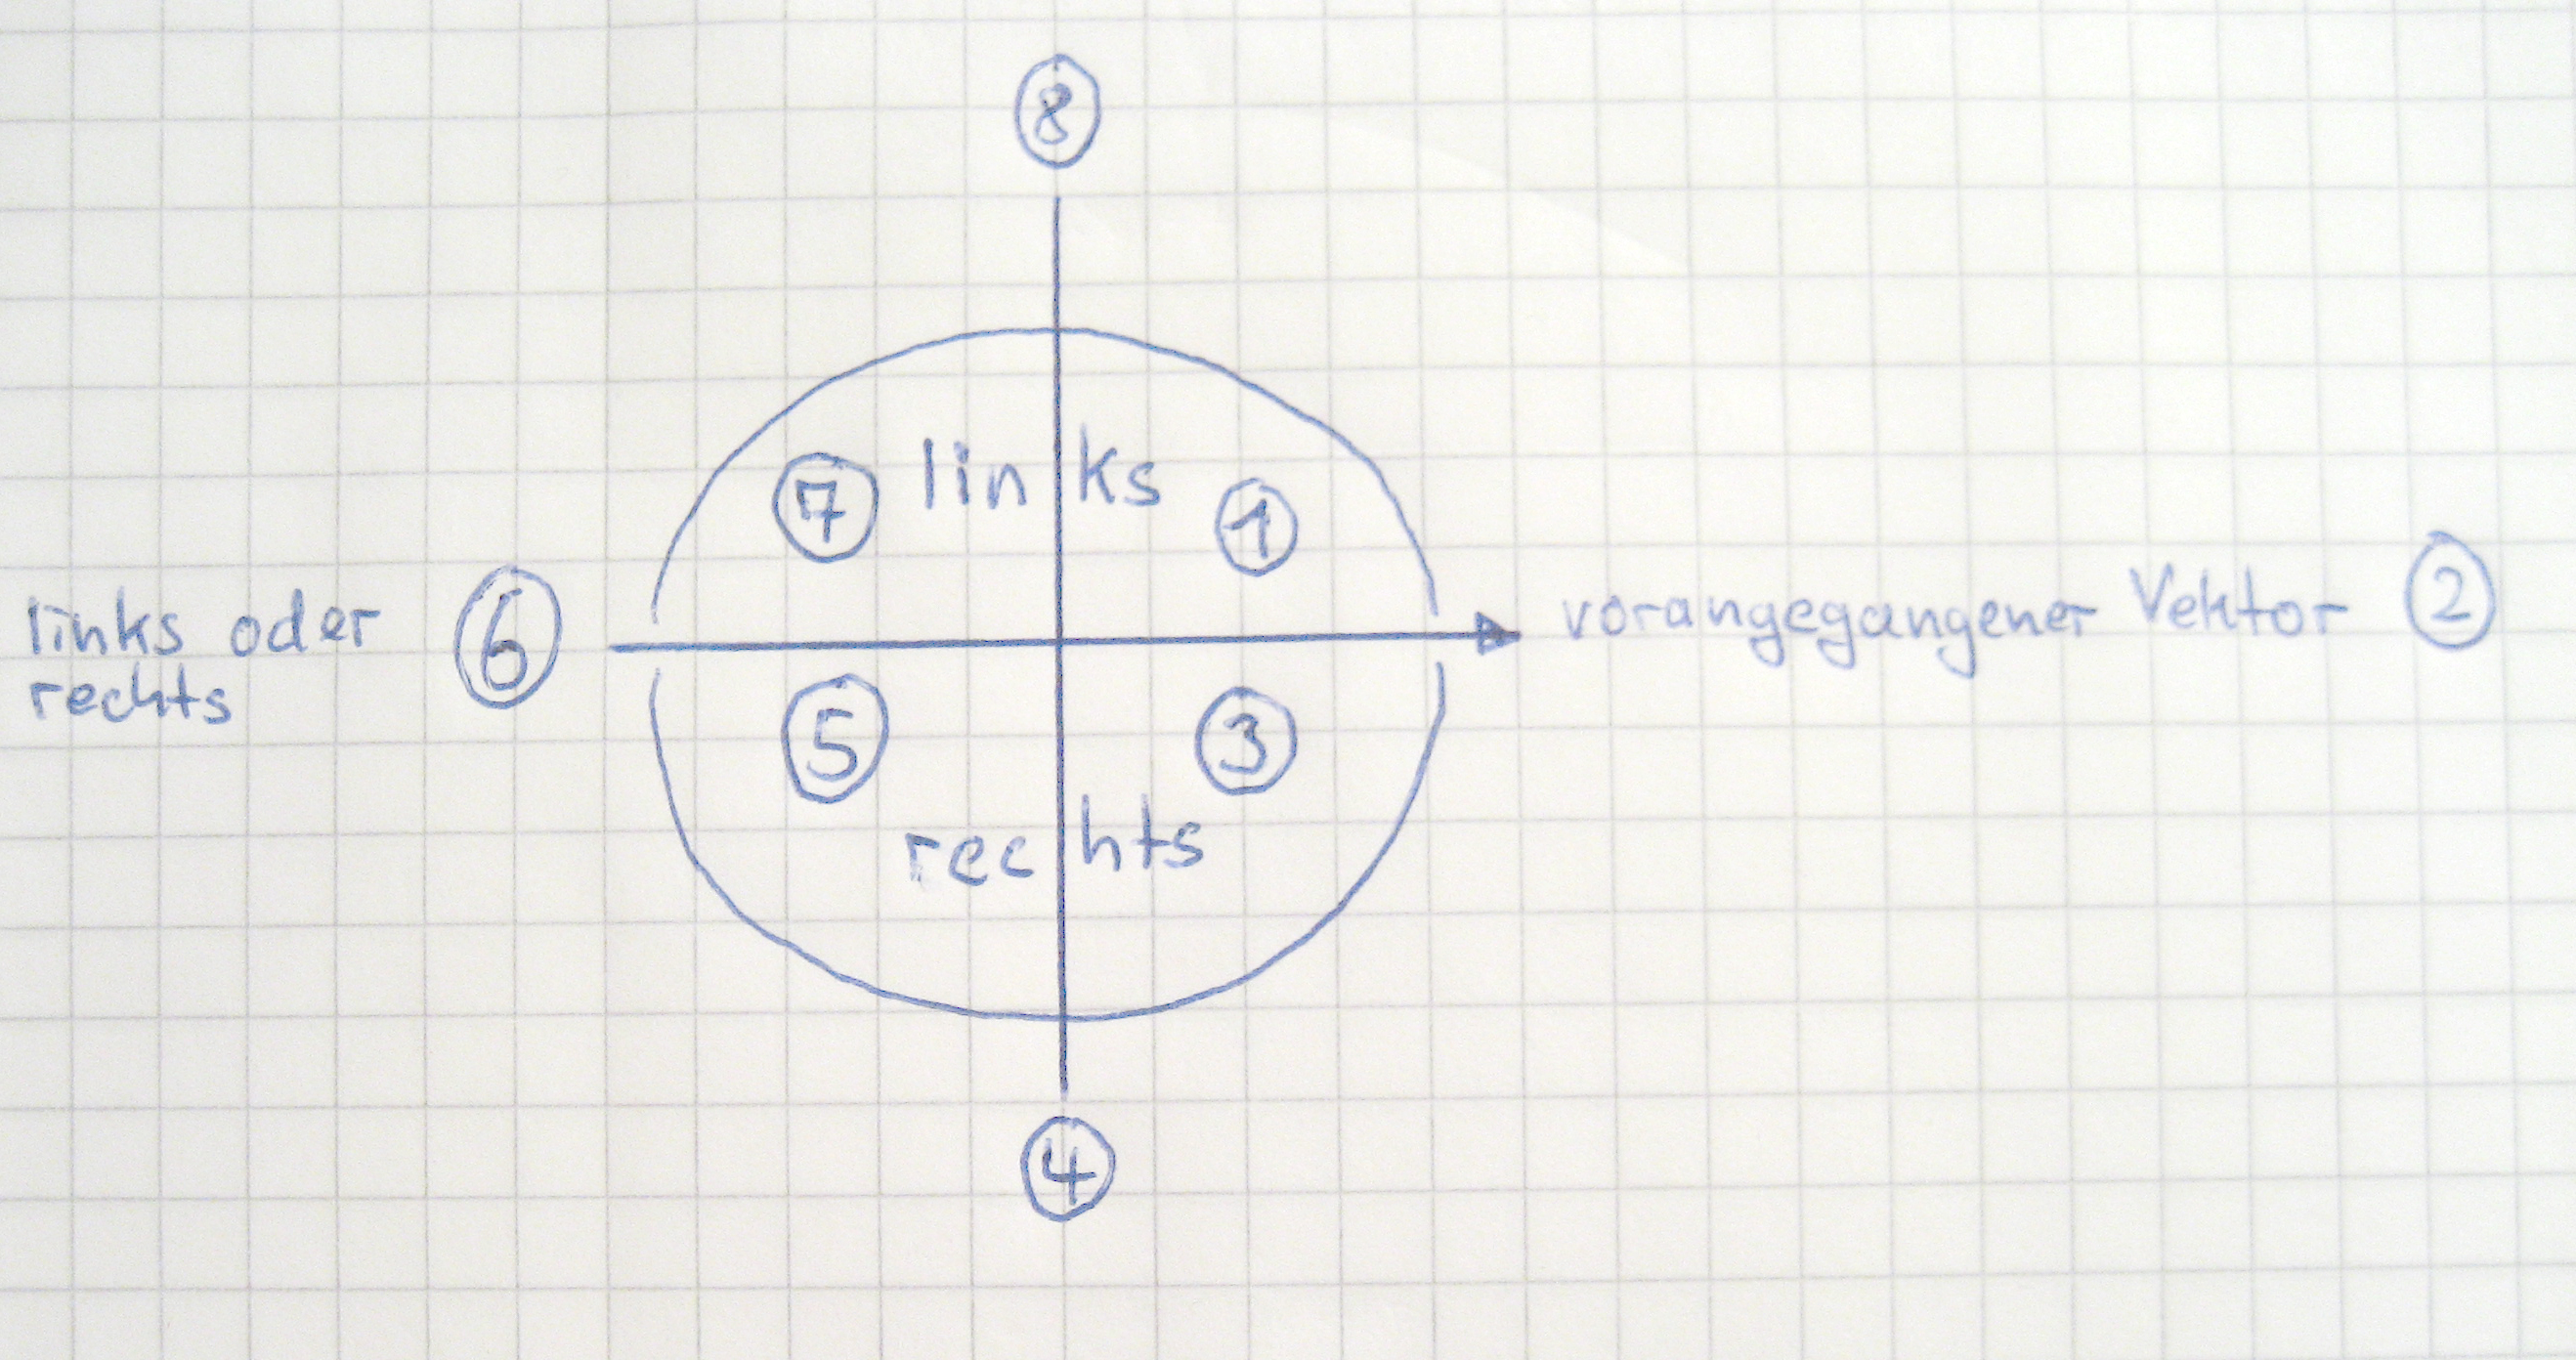 8
links
7
1
links oder
rechts
6
vorangegangener Vektor 2
5
3
rechts
4